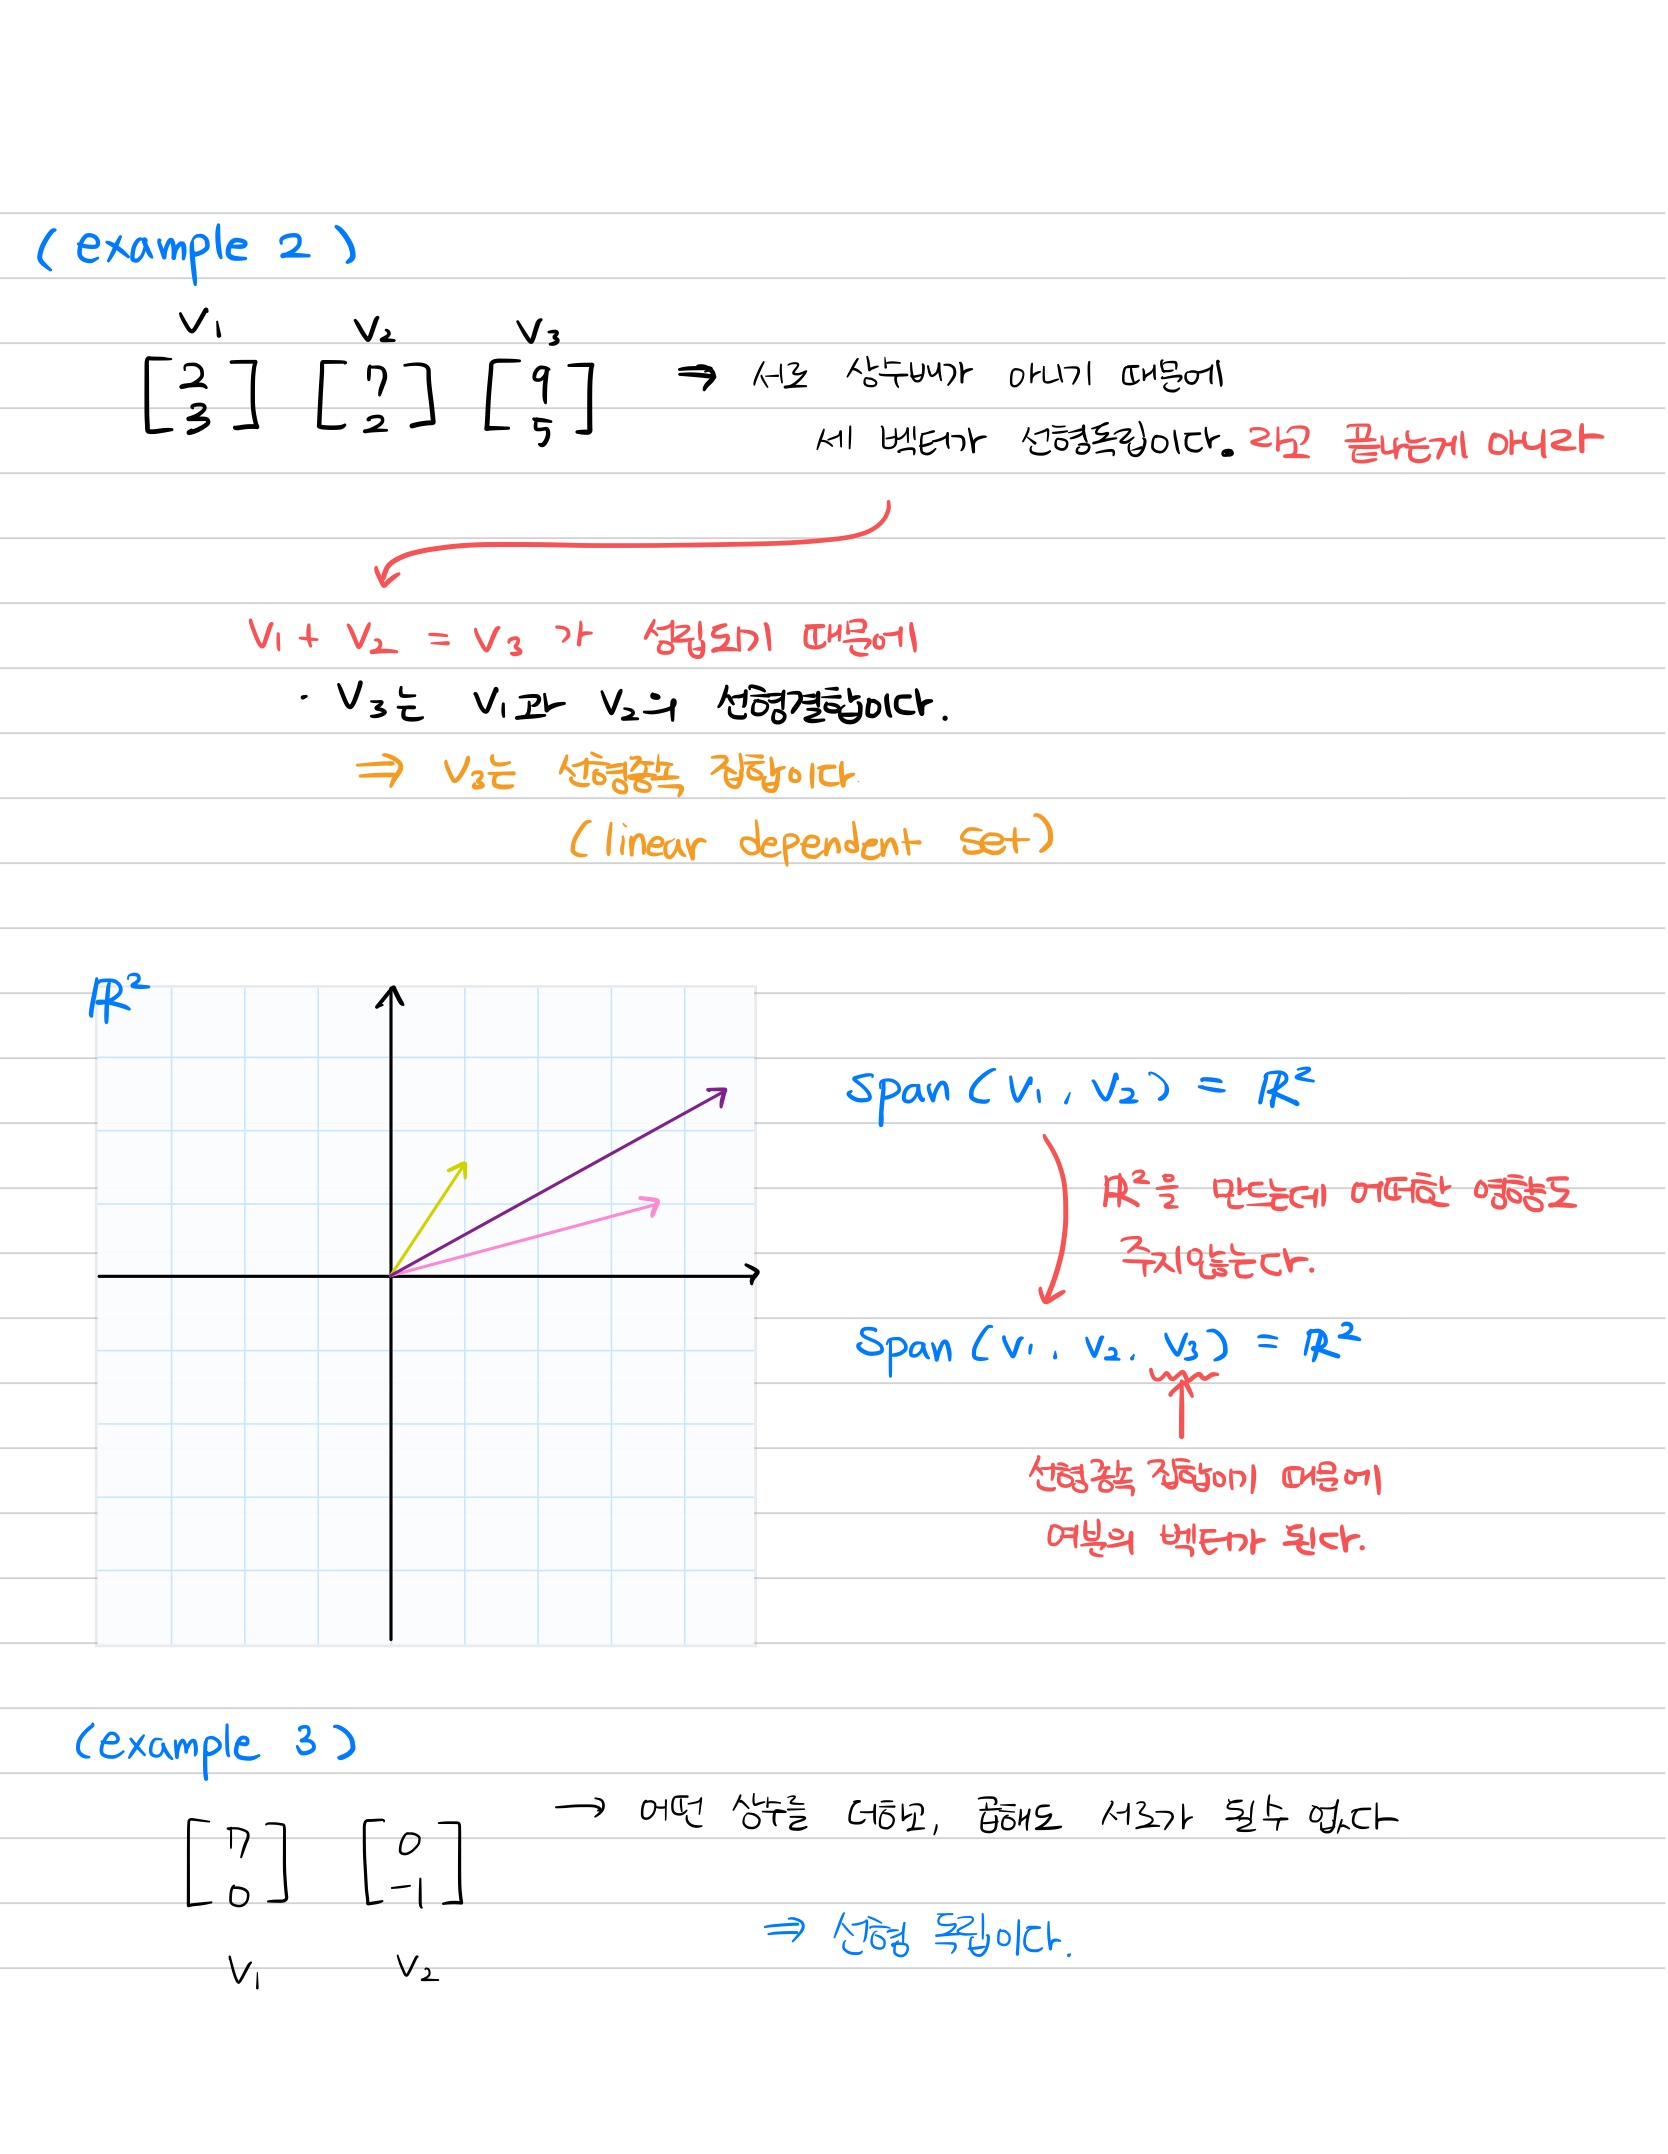 (example 2)
V₁ V₂ V₃
[2 3] [7 2] [9 5] ⇒ 서로 상수배가 아니기 때문에
세 벡터가 선형독립이다. 라고 끝나는게 아니라
V₁ + V₂ = V₃ 가 성립되기 때문에
· V₃는 V₁과 V₂의 선형결합이다.
⇒ V₃는 선형종속 집합이다.
(linear dependent set)
ℝ²
Span (V₁, V₂) = ℝ²
ℝ²을 만드는데 어떠한 영향도
주지않는다.
Span (V₁, V₂, V₃) = ℝ²
선형종속 집합이기 때문에
여분의 벡터가 된다.
(example 3)
[7 0] [0 -1] → 어떤 상수를 더하고, 곱해도 서로가 될수 없다
⇒ 선형 독립이다.
V₁ V₂